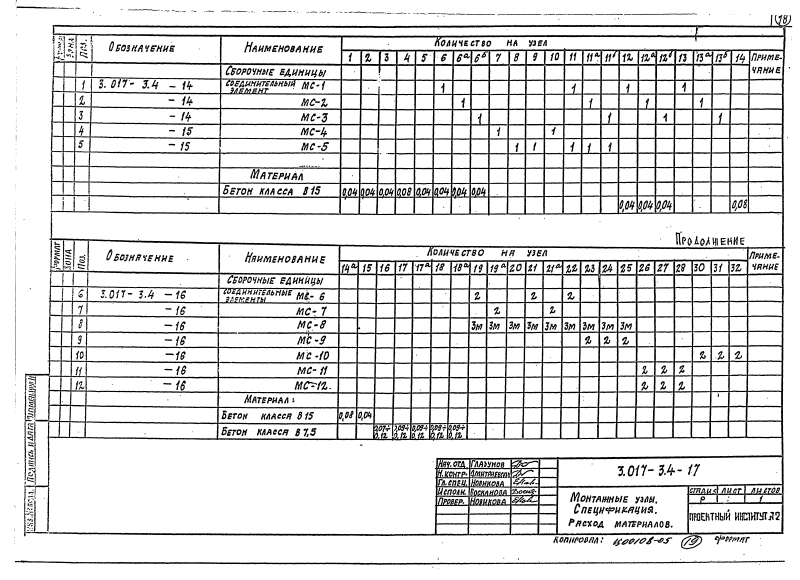 (18)
ФОРМАТ ЗОНА ПОЗ. ОБОЗНАЧЕНИЕ НАИМЕНОВАНИЕ КОЛИЧЕСТВО НА УЗЕЛ ПРИМЕ-ЧАНИЕ
1 2 3 4 5 6 6а 6б 7 8 9 10 11 11а 11б 12 12а 12б 13 13а 13б 14
СБОРОЧНЫЕ ЕДИНИЦЫ
1 3.017-3.4 -14 СОЕДИНИТЕЛЬНЫЙ ЭЛЕМЕНТ МС-1 1 1 1 1
2 -14 МС-2 1 1 1 1
3 -14 МС-3 1 1 1 1
4 -15 МС-4 1 1
5 -15 МС-5 1 1 1 1 1
МАТЕРИАЛ
БЕТОН КЛАССА В15 0,04 0,04 0,04 0,08 0,04 0,04 0,04 0,04
0,04 0,04 0,04 0,08
ПРОДОЛЖЕНИЕ
ФОРМАТ ЗОНА ПОЗ. ОБОЗНАЧЕНИЕ НАИМЕНОВАНИЕ КОЛИЧЕСТВО НА УЗЕЛ ПРИМЕ-ЧАНИЕ
14а 15 16 17 17а 18 18а 19 19а 20 21 21а 22 23 24 25 26 27 28 30 31 32
СБОРОЧНЫЕ ЕДИНИЦЫ
6 3.017-3.4 -16 СОЕДИНИТЕЛЬНЫЕ ЭЛЕМЕНТЫ МС-6 2 2 2
7 -16 МС-7 2 2
8 -16 МС-8 3м 3м 3м 3м 3м 3м 3м 3м 3м
9 -16 МС-9 2 2 2
10 -16 МС-10 2 2 2
11 -16 МС-11 2 2 2
12 -16 МС-12. 2 2 2
МАТЕРИАЛ:
БЕТОН КЛАССА В15 0,08 0,04
БЕТОН КЛАССА В7,5 0,07÷0,12 0,09÷0,12 0,09÷0,12 0,09÷0,12 0,09÷0,12
НАЧ. ОТД ГЛАЗУНОВ
Н. КОНТР.
ГЛ. СПЕЦ. НОВИКОВА
ИСПОЛН.
ПРОВЕР. НОВИКОВА
3.017-3.4-17
МОНТАЖНЫЕ УЗЛЫ.
СПЕЦИФИКАЦИЯ.
РАСХОД МАТЕРИАЛОВ.
СТАДИЯ ЛИСТ ЛИСТОВ
Р 1
ПРОЕКТНЫЙ ИНСТИТУТ №2
ПОДПИСЬ И ДАТА
КОПИРОВАЛ: 1600108-05 (19) ФОРМАТ